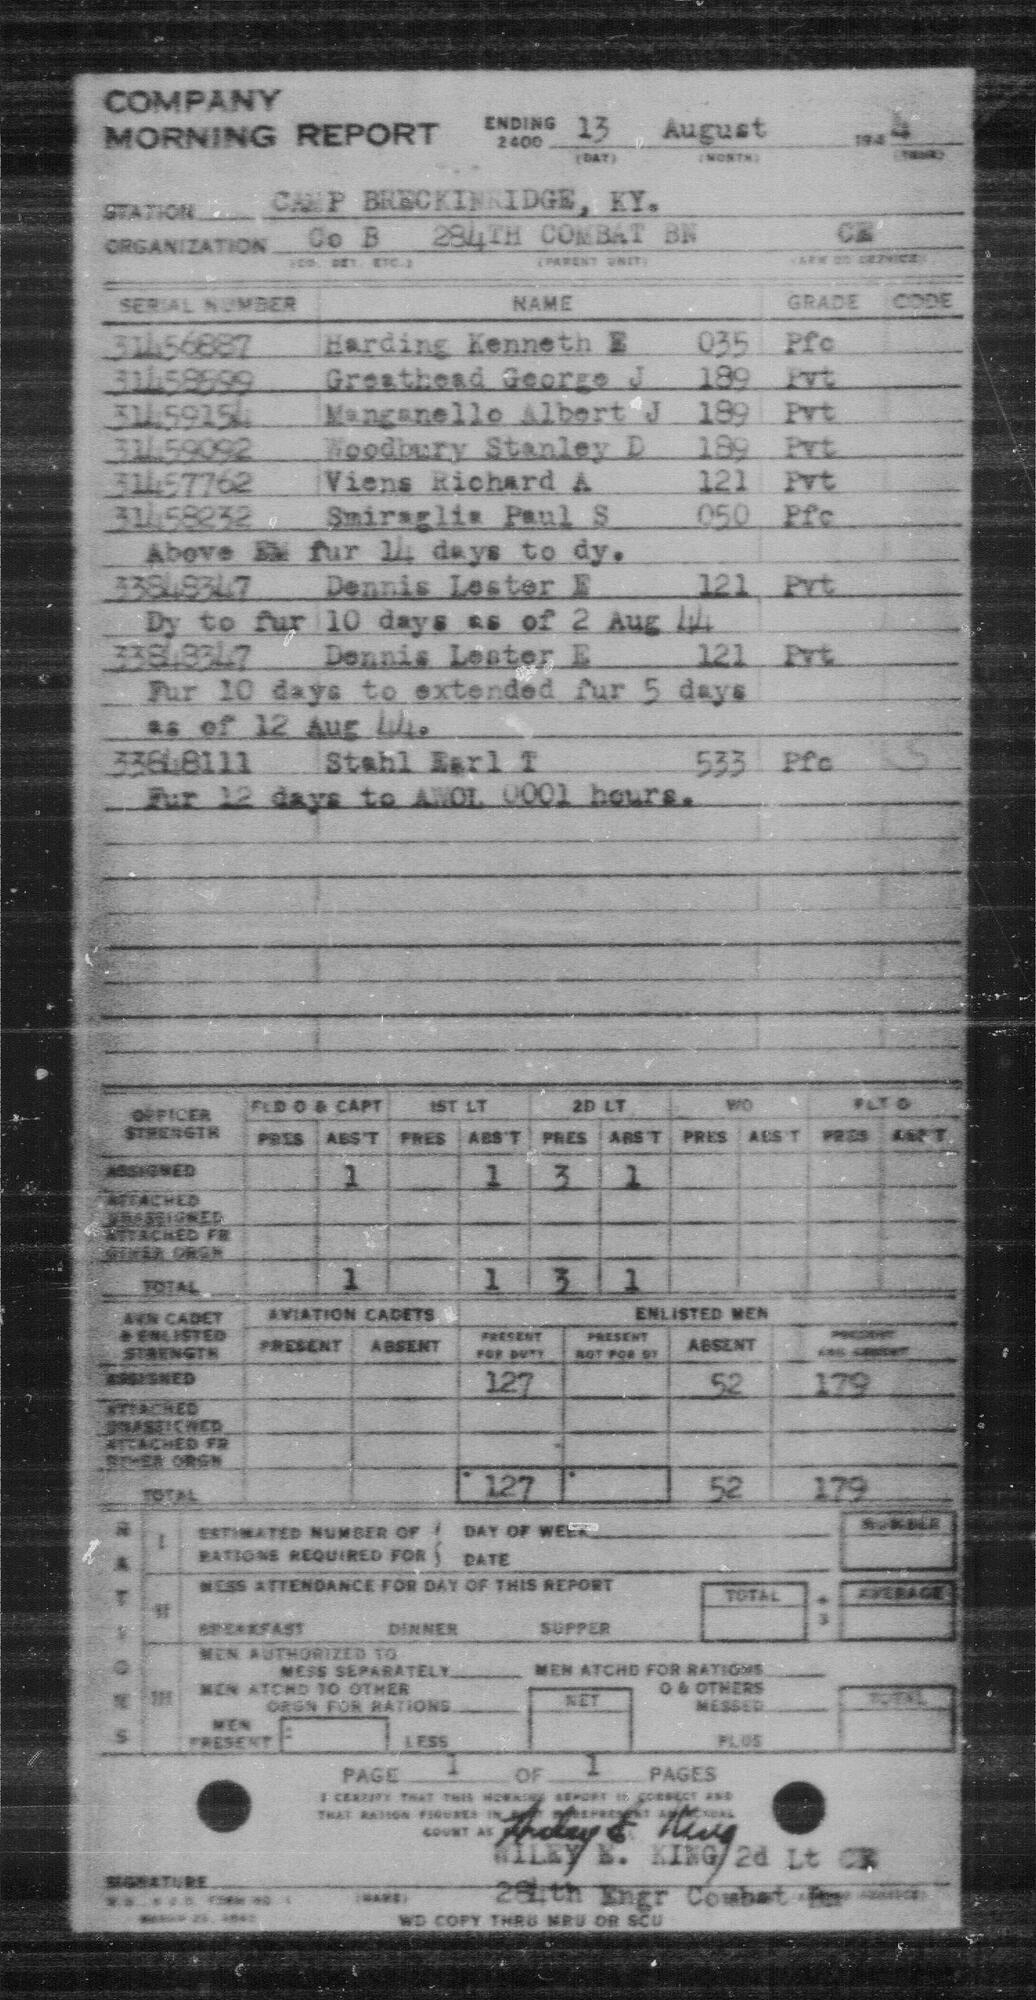 COMPANY
MORNING REPORT ENDING 2400 13 August 194 4
(DAY) (MONTH) (YEAR)
STATION CAMP BRECKINRIDGE, KY.
ORGANIZATION Co B 284TH COMBAT BN CE
(CO. DET. ETC.) (PARENT UNIT) (ARM OR SERVICE)
SERIAL NUMBER NAME GRADE CODE
31456887 Harding Kenneth E 035 Pfc
31458599 Greathead George J 189 Pvt
31459154 Manganello Albert J 189 Pvt
31459092 Woodbury Stanley D 189 Pvt
31457762 Viens Richard A 121 Pvt
31458232 Smiraglia Paul S 050 Pfc
Above EM fur 14 days to dy.
33848347 Dennis Lester E 121 Pvt
Dy to fur 10 days as of 2 Aug 44
33848347 Dennis Lester E 121 Pvt
Fur 10 days to extended fur 5 days
as of 12 Aug 44.
33848111 Stahl Earl T 533 Pfc
Fur 12 days to AWOL 0001 hours.
OFFICER STRENGTH FLD O & CAPT 1ST LT 2D LT WO FLT O
PRES ABS'T PRES ABS'T PRES ABS'T PRES ABS'T PRES ABS'T
ASSIGNED 1 1 3 1
ATTACHED UNASSIGNED
ATTACHED FR OTHER ORGN
TOTAL 1 1 3 1
AVN CADET & ENLISTED STRENGTH AVIATION CADETS ENLISTED MEN
PRESENT ABSENT PRESENT FOR DUTY PRESENT NOT FOR DY ABSENT PRESENT AND ABSENT
ASSIGNED 127 52 179
ATTACHED UNASSIGNED
ATTACHED FR OTHER ORGN
TOTAL 127 52 179
RATIONS
I ESTIMATED NUMBER OF DAY OF WEEK NUMBER
RATIONS REQUIRED FOR DATE
II MESS ATTENDANCE FOR DAY OF THIS REPORT TOTAL ÷ 3 AVERAGE
BREAKFAST DINNER SUPPER
III MEN AUTHORIZED TO
MESS SEPARATELY MEN ATCHD FOR RATIONS
MEN ATCHD TO OTHER O & OTHERS
ORGN FOR RATIONS NET MESSED TOTAL
MEN PRESENT LESS PLUS
PAGE 1 OF 1 PAGES
I CERTIFY THAT THIS MORNING REPORT IS CORRECT AND
THAT RATION FIGURES IN REPRESENT AN ACTUAL
COUNT AS
Wiley E. King
WILEY E. KING 2d Lt CE
SIGNATURE
284th Engr Combat Bn
(NAME)
WD COPY THRU MRU OR SCU